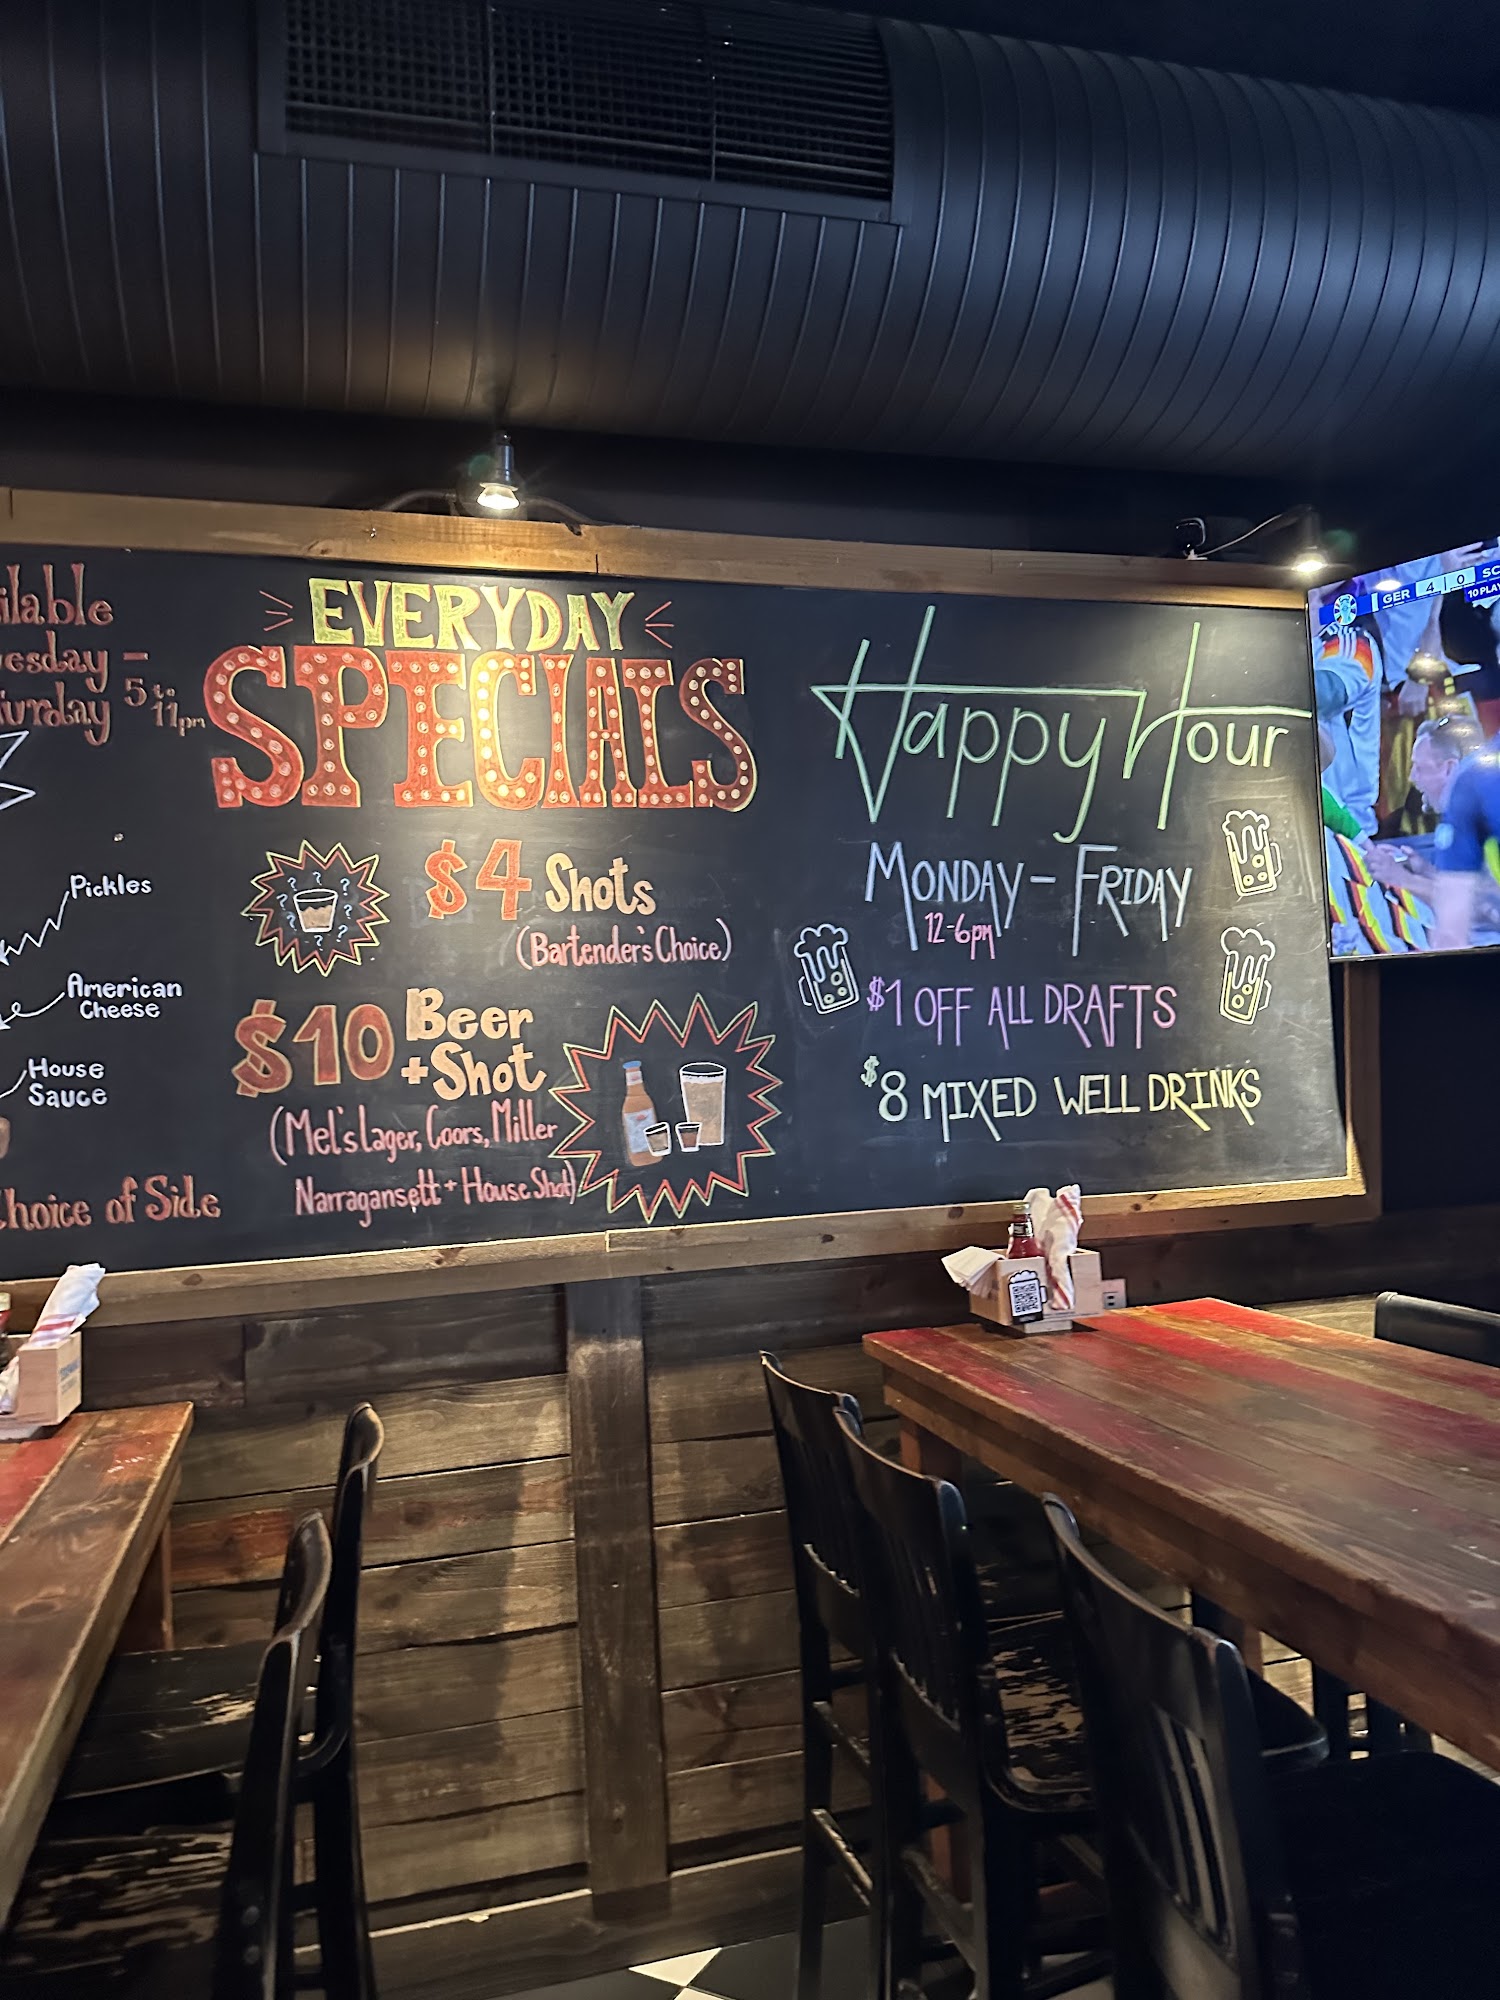 5 to 11pm
Pickles
American
Cheese
House
Sauce
Choice of Side
EVERYDAY
SPECIALS
$4 Shots
(Bartender's Choice)
$10 Beer
+Shot
(Mel's Lager, Coors, Miller
Narragansett + House Shot)
Happy Hour
MONDAY - FRIDAY
12-6pm
$1 OFF ALL DRAFTS
$8 MIXED WELL DRINKS
GER 4 | 0